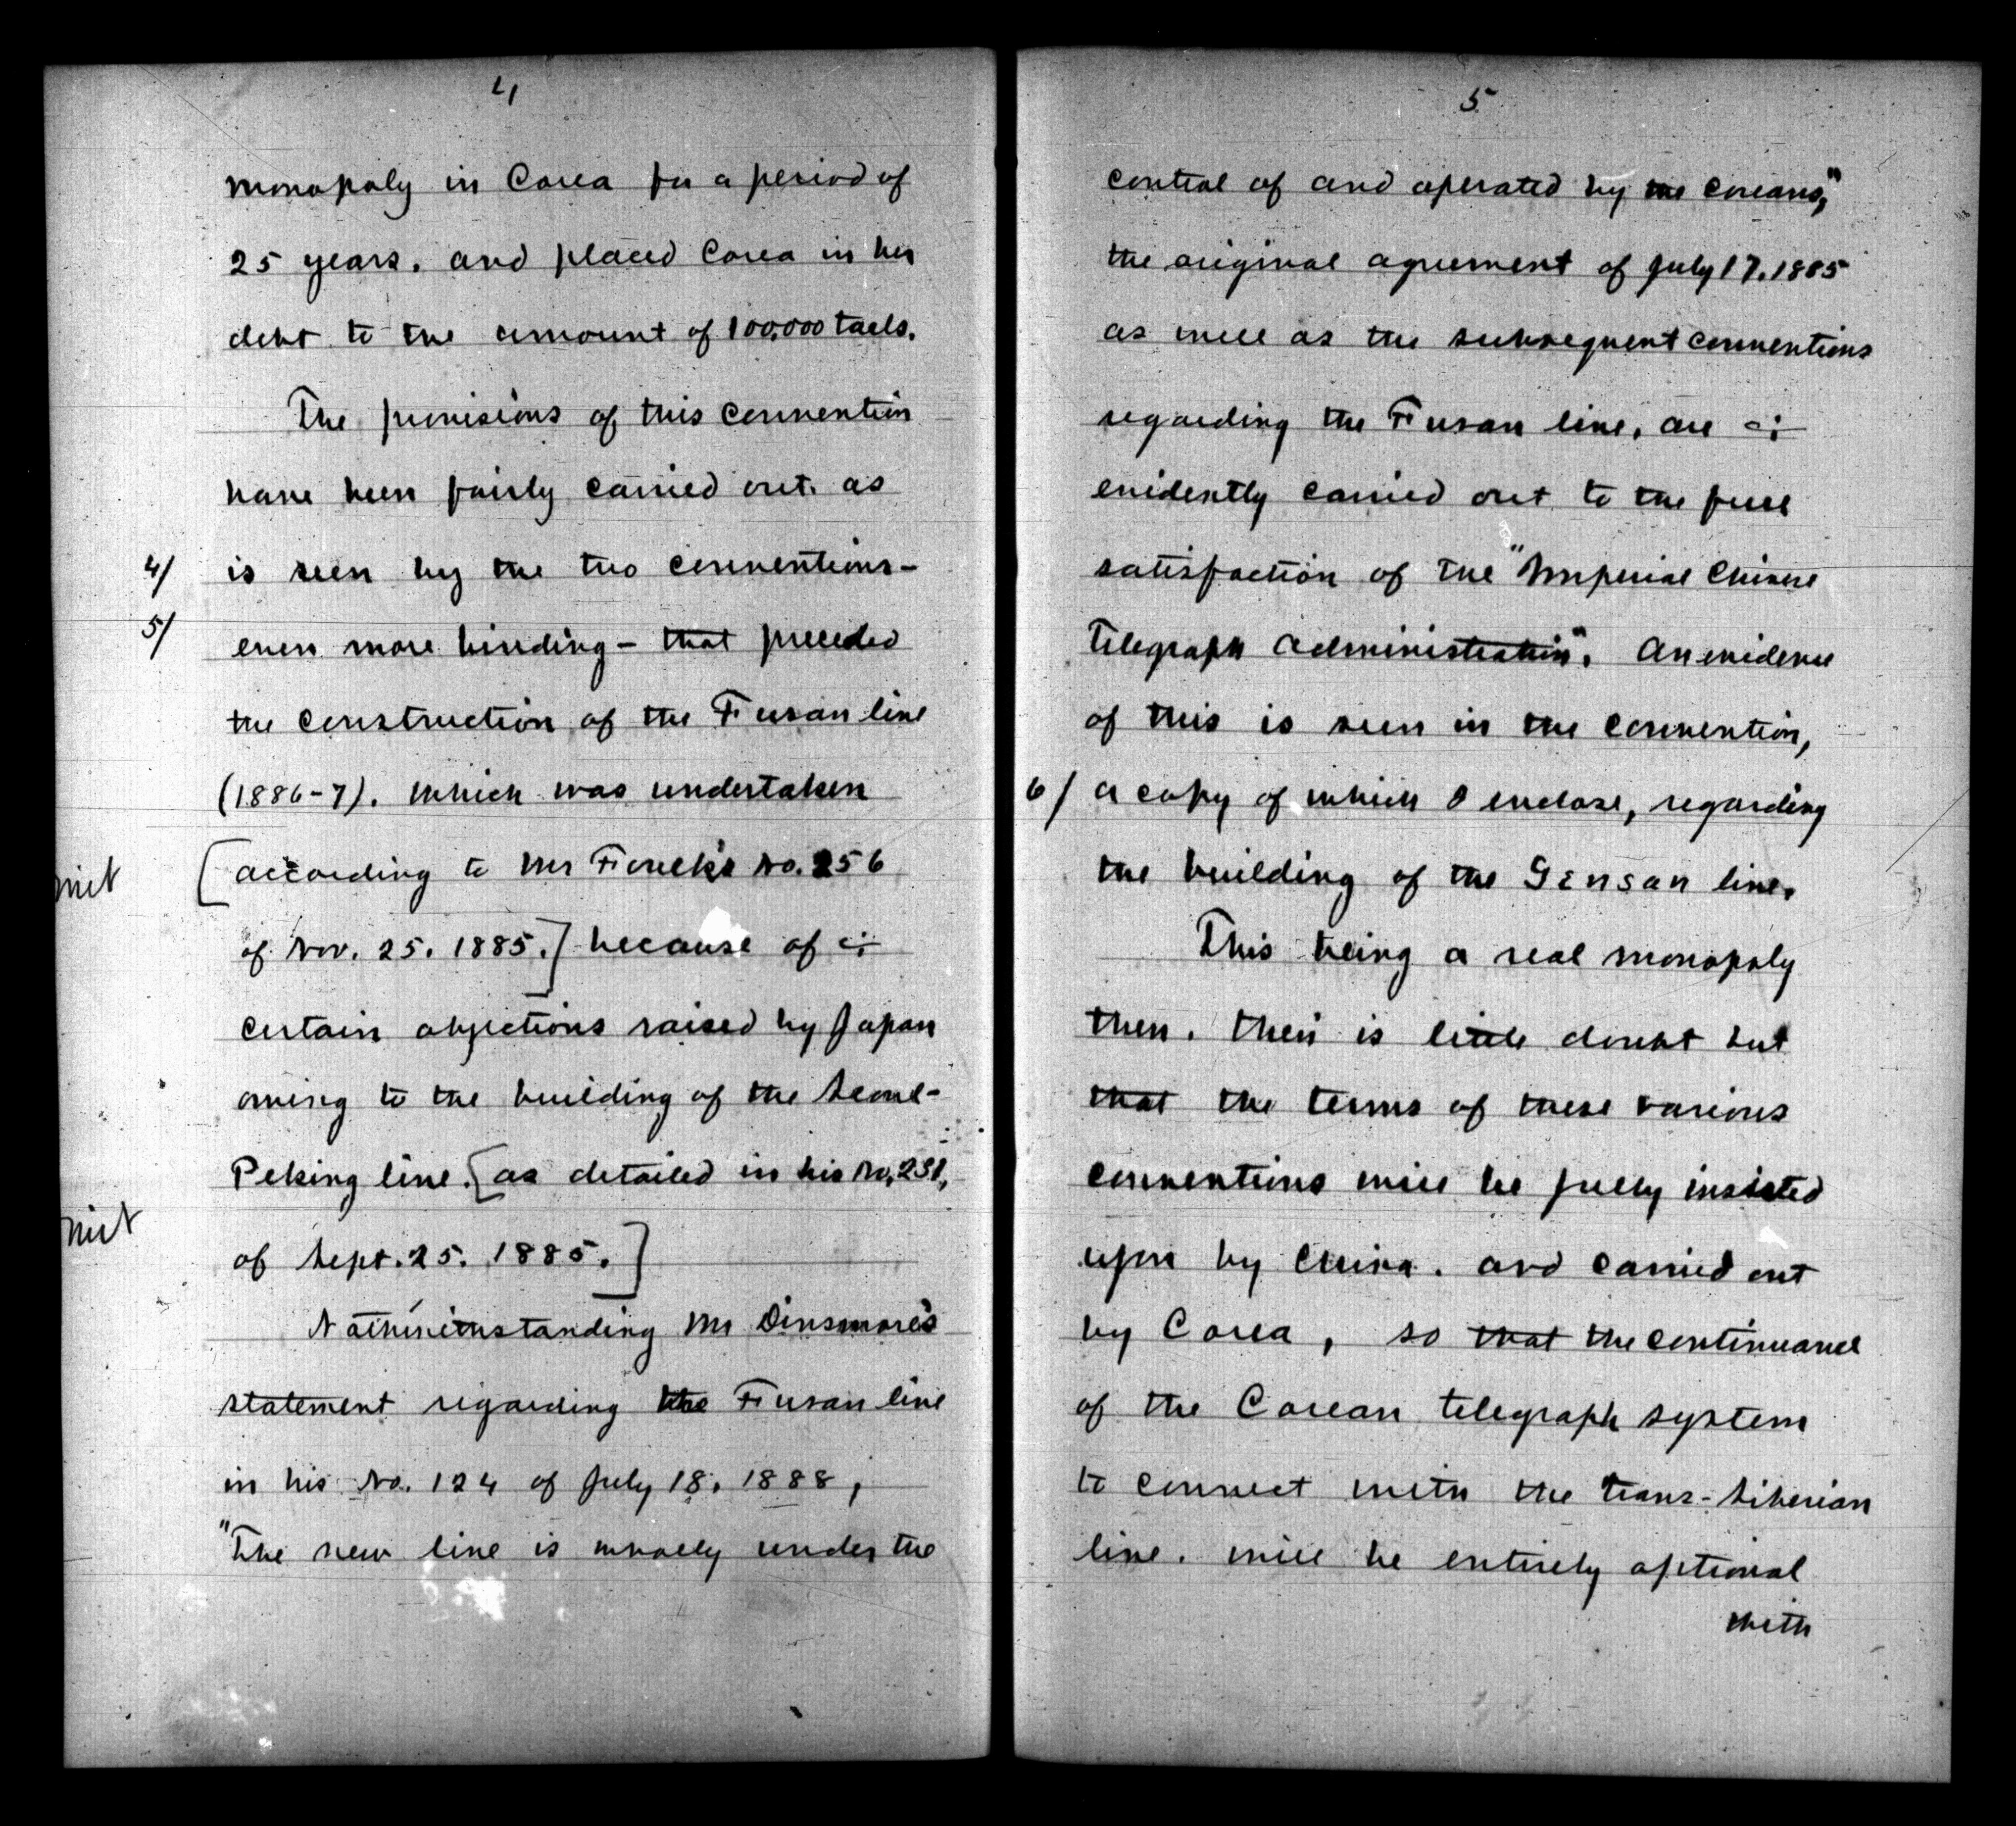 4
monopoly in Corea for a period of
25 years. and placed Corea in her
debt to the amount of 100,000 taels.
The provisions of this convention
have been fairly carried out. as
4/ is seen by the two conventions-
5/ even more binding - that preceded
the construction of the Fusan line
(1886-7). which was undertaken
[according to Mr Foulk's No. 256
of Nov. 25. 1885.] because of
certain objections raised by Japan
owing to the building of the Seoul-
Peking line. [as detailed in his No. 231,
of Sept. 25. 1885.]
Nothwithstanding Mr Dinsmore's
statement regarding the Fusan line
in his No. 124 of July 18. 1888,
"The new line is wholly under the
5
control of and operated by the Coreans,"
the original agreement of July 17. 1885
as well as the subsequent conventions
regarding the Fusan line, are
evidently carried out to the full
satisfaction of the "Imperial Chinese
Telegraph Administration". An evidence
of this is seen in the convention,
6/ a copy of which I enclose, regarding
the building of the Gensan line.
This being a real monopoly
then. their is little doubt but
that the terms of these various
conventions will be fully insisted
upon by China. and carried out
by Corea, so that the continuance
of the Corean telegraph system
to connect with the trans-Siberian
line. will be entirely optional
with